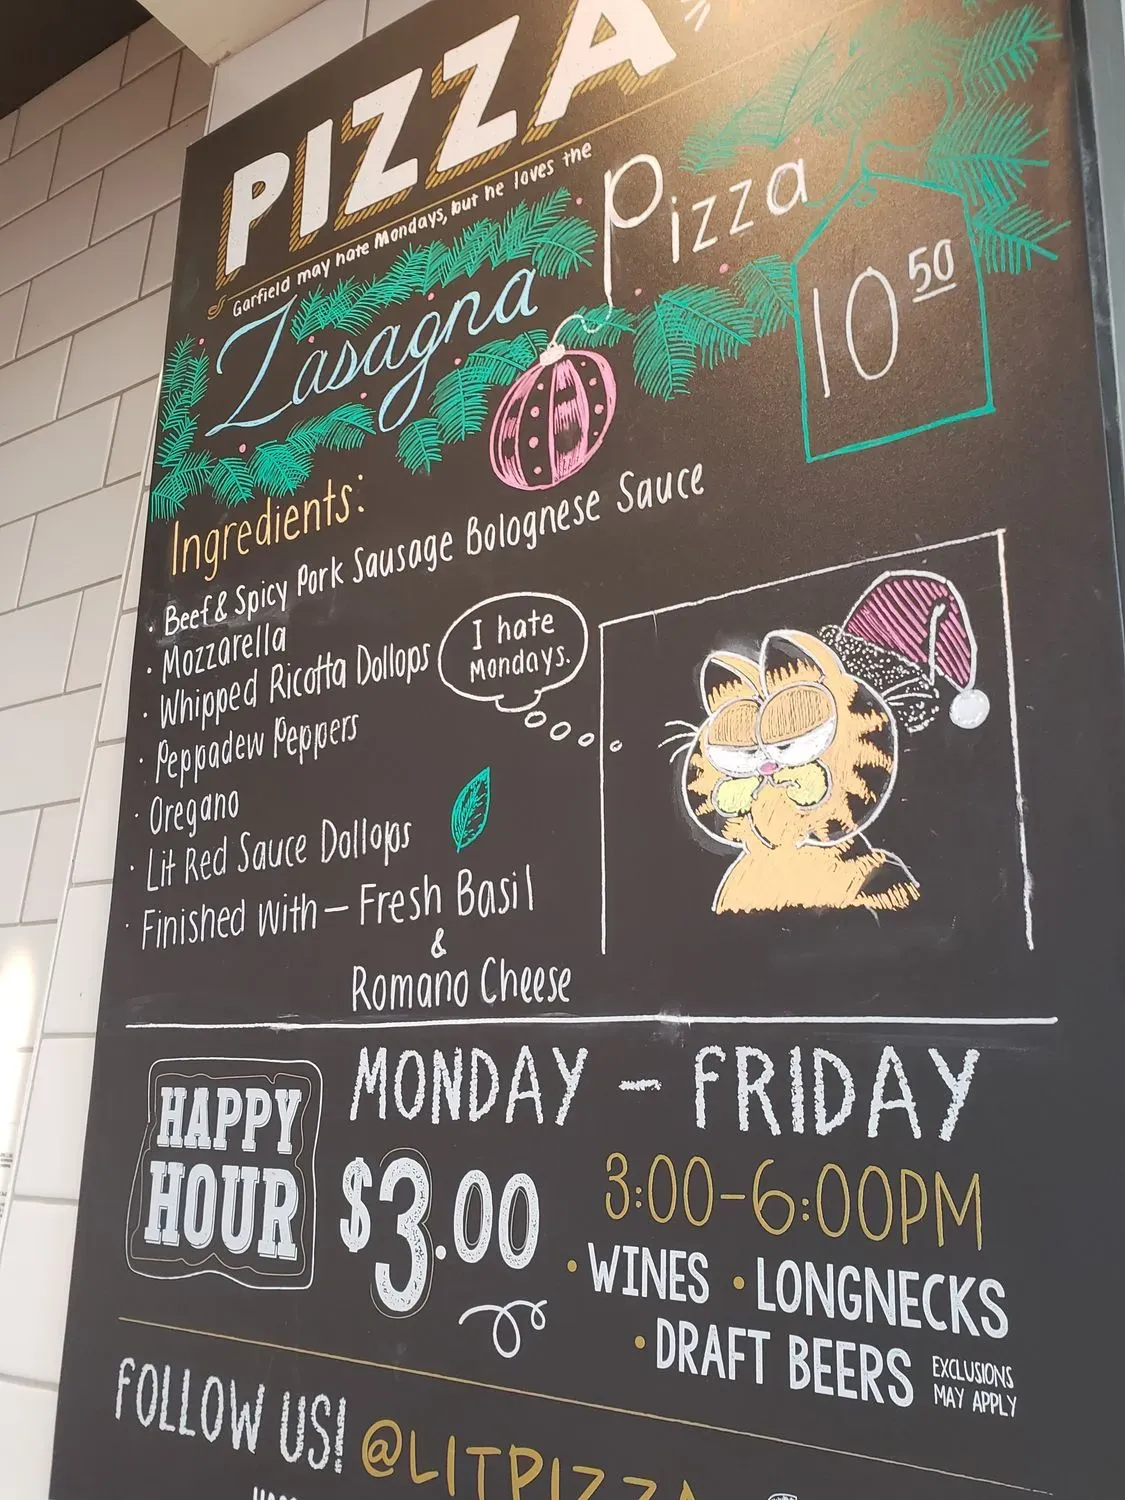 PIZZA
Garfield may hate Mondays, but he loves the
Lasagna Pizza
10 50
Ingredients:
· Beef & Spicy Pork Sausage Bolognese Sauce
· Mozzarella
· Whipped Ricotta Dollops
· Peppadew Peppers
· Oregano
· Lit Red Sauce Dollops
· Finished With — Fresh Basil
&
Romano Cheese
I hate
Mondays.
HAPPY
HOUR
MONDAY - FRIDAY
$3.00
3:00-6:00PM
• WINES • LONGNECKS
• DRAFT BEERS
EXCLUSIONS
MAY APPLY
FOLLOW US! @LITPIZZA